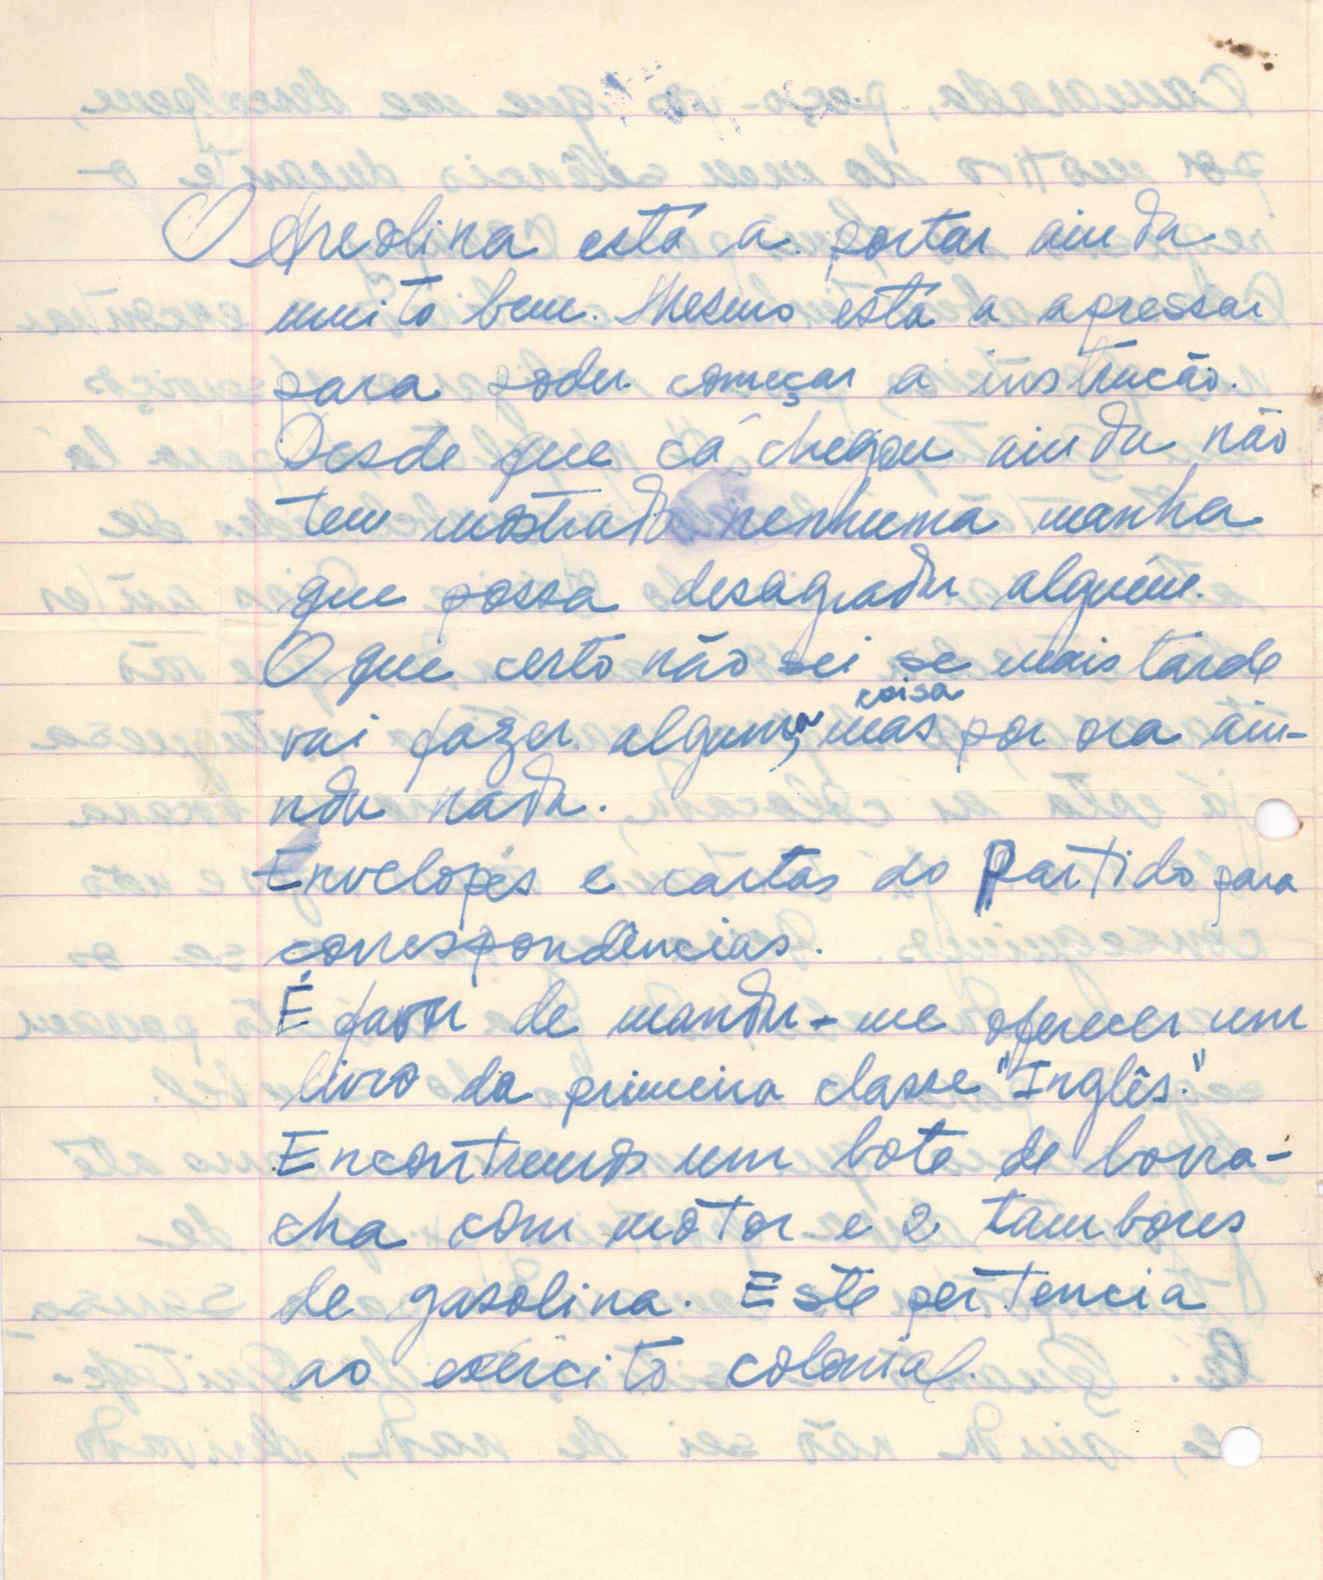 O Areolina está a portar ainda
muito bem. Mesmo está a apressar
para poder começar a instrucão.
Desde que cá chegou ainda não
tem mostrado nenhuma manha
que possa desagradar alguém.
O que certo não sei se mais tarde
vai fazer alguma coisa, mas por ora ain-
nda nada.
Envelopes e cartas do Partido para
correspondências.
É favor de mandar-me oferecer um
livro da primeira classe "Inglês."
Encontramos um bote de borra-
cha com motor e 2 tambores
de gasolina. Este pertencia
ao exército colonial.